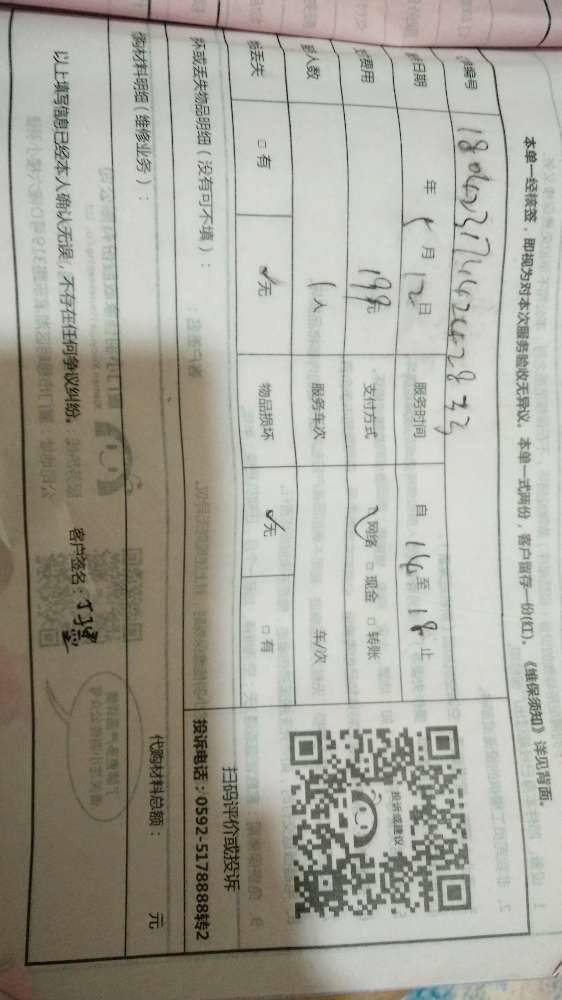 本单一经核签，即视为对本次服务验收无异议。本单一式两份，客户留存一份(红)。《维保须知》详见背面。
编号
日期 年 5 月 12 日 服务时间 自 14 至 18 止
费用 199元 支付方式 ✓网络 □现金 □转账
人数 1人 服务车次 车/次
丢失 □有 ✓无 物品损坏 ✓无 □有
坏或丢失物品明细（没有可不填）：
购材料明细（维修业务）：
代购材料总额： 元
投诉或建议
扫码评价或投诉
投诉电话：0592-5178888转2
以上填写信息已经本人确认无误，不存在任何争议纠纷。 客户签名：